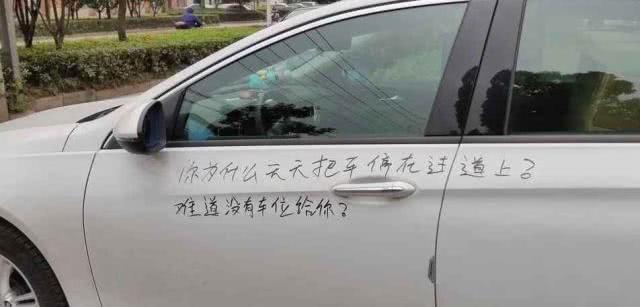 你为什么天天把车停在过道上?
难道没有车位给你?